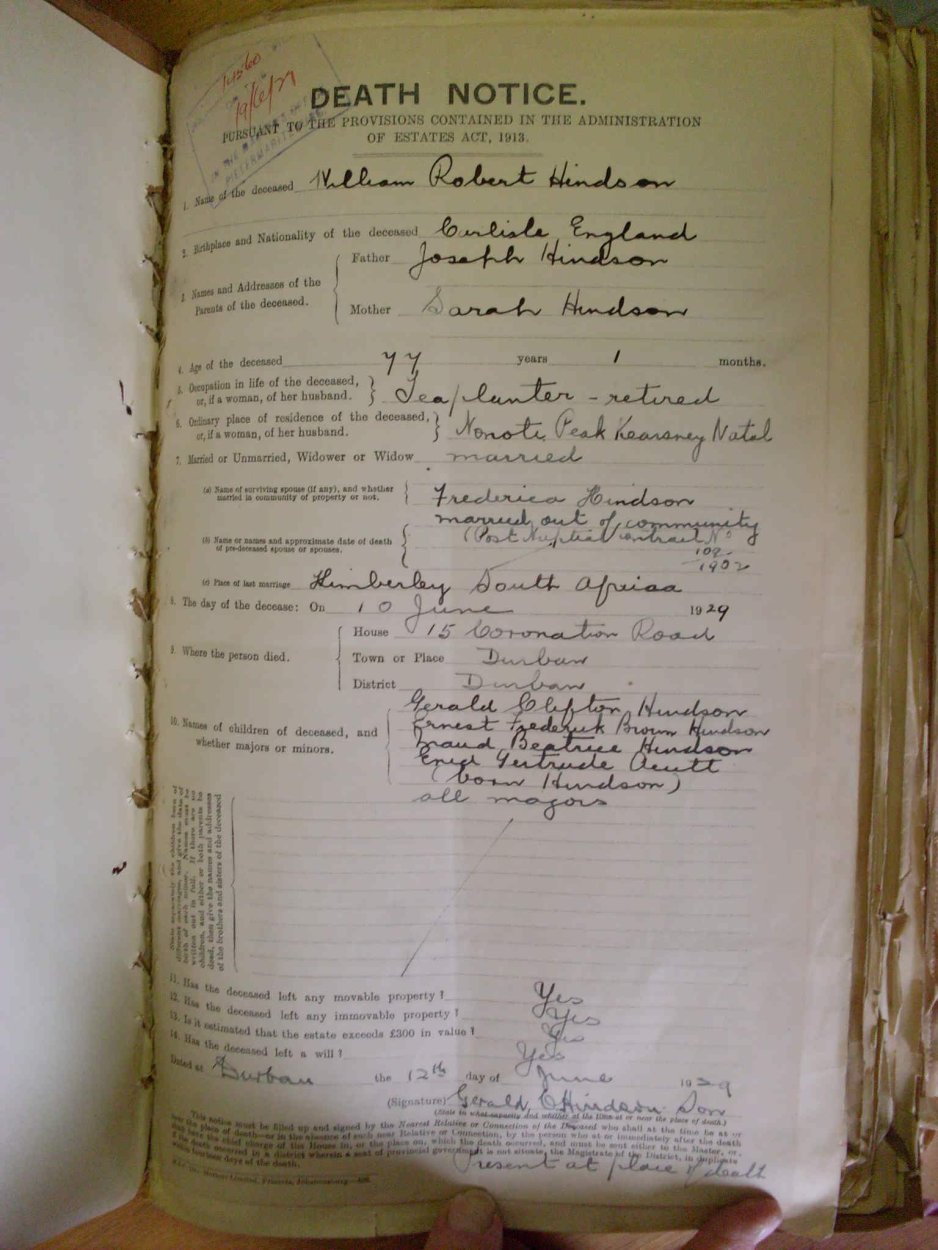 14560
19/6/29
DEATH NOTICE.
PURSUANT TO THE PROVISIONS CONTAINED IN THE ADMINISTRATION
OF ESTATES ACT, 1913.
1. Name of the deceased William Robert Hindson
2. Birthplace and Nationality of the deceased Carlisle England
3. Names and Addresses of the Parents of the deceased.
Father Joseph Hindson
Mother Sarah Hindson
4. Age of the deceased 77 years 1 months.
5. Occupation in life of the deceased, or, if a woman, of her husband. Tea planter - retired
6. Ordinary place of residence of the deceased, or, if a woman, of her husband. Nonoti Peak Kearsney Natal
7. Married or Unmarried, Widower or Widow married
(a) Name of surviving spouse (if any), and whether married in community of property or not. Frederica Hindson
married out of community
(Post Nuptial Contract No
109
1902
(b) Name or names and approximate date of death of pre-deceased spouse or spouses.
(c) Place of last marriage Kimberley South Africa
8. The day of the decease: On 10 June 1929
9. Where the person died.
House 15 Coronation Road
Town or Place Durban
District Durban
10. Names of children of deceased, and whether majors or minors.
Gerald Clifton Hindson
Ernest Frederick Brown Hindson
Maud Beatrice Hindson
Enid Gertrude Acutt
(born Hindson)
all majors
State separately the children born of
different marriages, and give the date of
birth of each minor. Names must be
written out in full. If there are no
children, and either or both parents be
dead, then give the names and addresses
of the brothers and sisters of the deceased
11. Has the deceased left any movable property? Yes
12. Has the deceased left any immovable property? Yes
13. Is it estimated that the estate exceeds £300 in value? Yes
14. Has the deceased left a will? Yes
Dated at Durban the 12th day of June 1929
(Signature) Gerald C Hindson Son
(State in what capacity and whether at the time at or near the place of death.)
This notice must be filled up and signed by the Nearest Relative or Connection of the Deceased who shall at the time be at or
near the place of death—or in the absence of such near Relative or Connection, by the person who at or immediately after the death
shall have the chief charge of the House in, or the place on, which the death occurred, and must be sent either to the Master, or,
if the death occurred in a district wherein a seat of provincial government is not situate, the Magistrate of the District, in duplicate
within fourteen days of the death.
Present at place of death